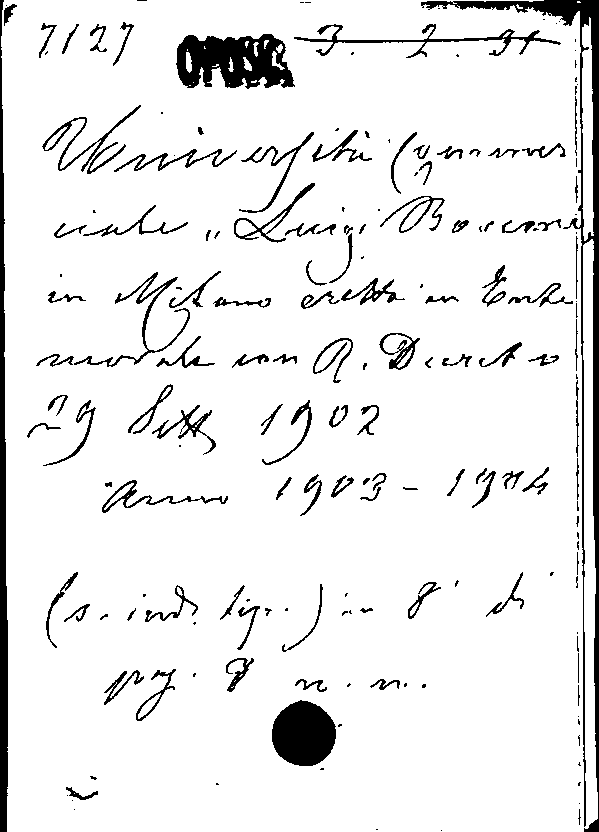 7127 OPUSC. 3. 2. 31
Università Commer
ciale „Luigi Bocconi„
in Milano eretta in Ente
morale con R. Decreto
29 Sett 1902
Anno 1903-1904
(s. ind. tip.) in 8° di
pag. 8 n. n.